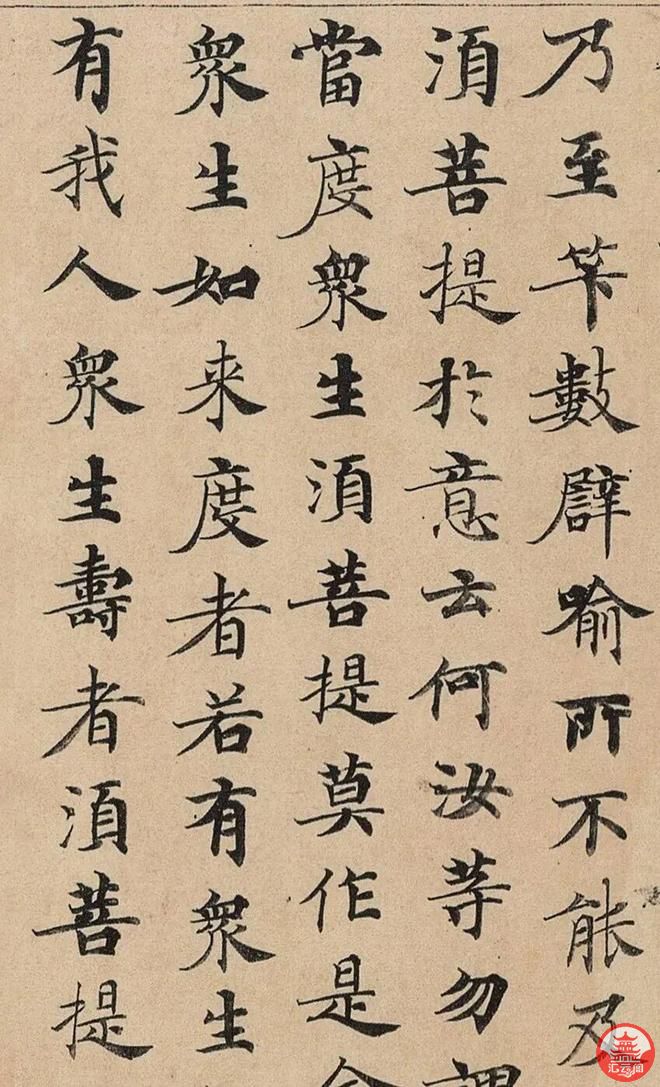 乃至笇數譬喻所不能及
須菩提於意云何汝等勿謂
當度衆生須菩提莫作是念
衆生如来度者若有衆生
有我人衆生壽者須菩提
汇云阁